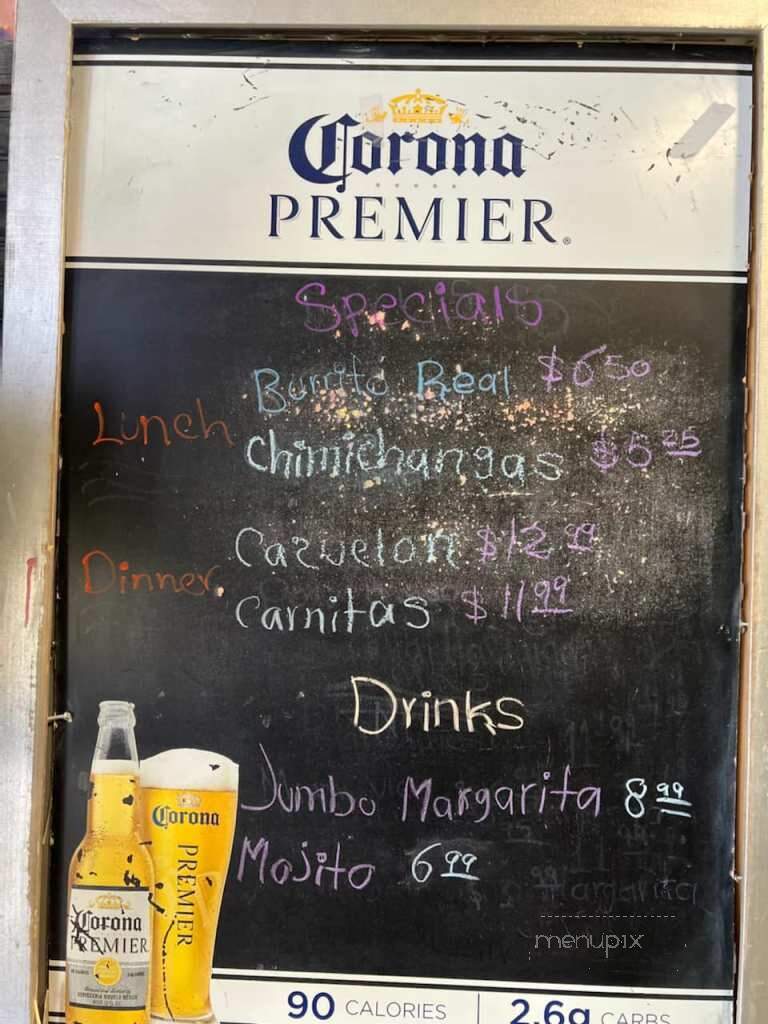 Corona
PREMIER®
Specials
Burrito Real $6 50
Lunch
Chimichangas $5 25
Cazuelon $12 99
Dinner
Carnitas $11 99
Drinks
Jumbo Margarita 8 99
Mojito 6 99
Margarita
Corona
PREMIER
Corona
PREMIER
menupix
90 CALORIES | 2.6g CARBS